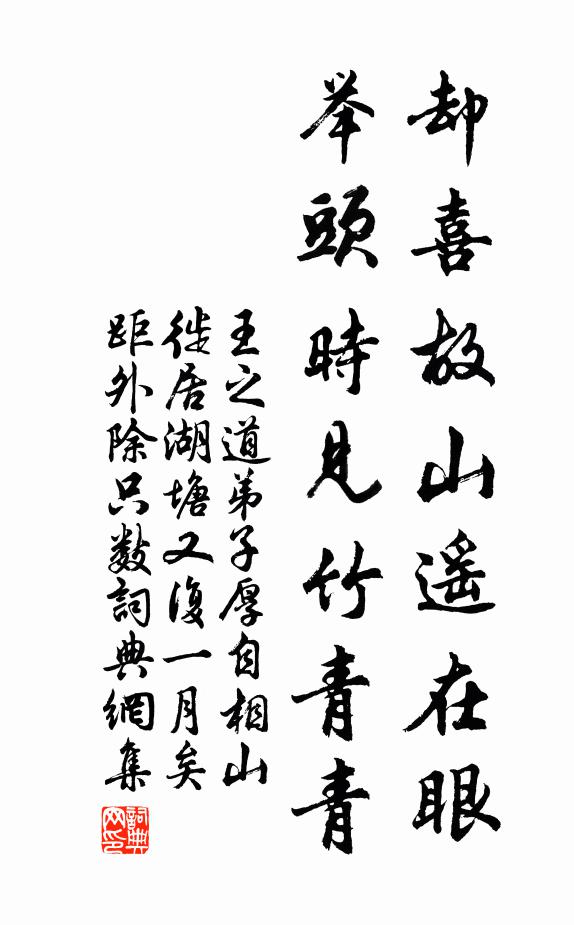 却喜故山遥在眼
举頭時見竹青青
王之道弟子厚自相山
徙居湖塘又復一月矣
距外除只數詞典網集
詞典
网印